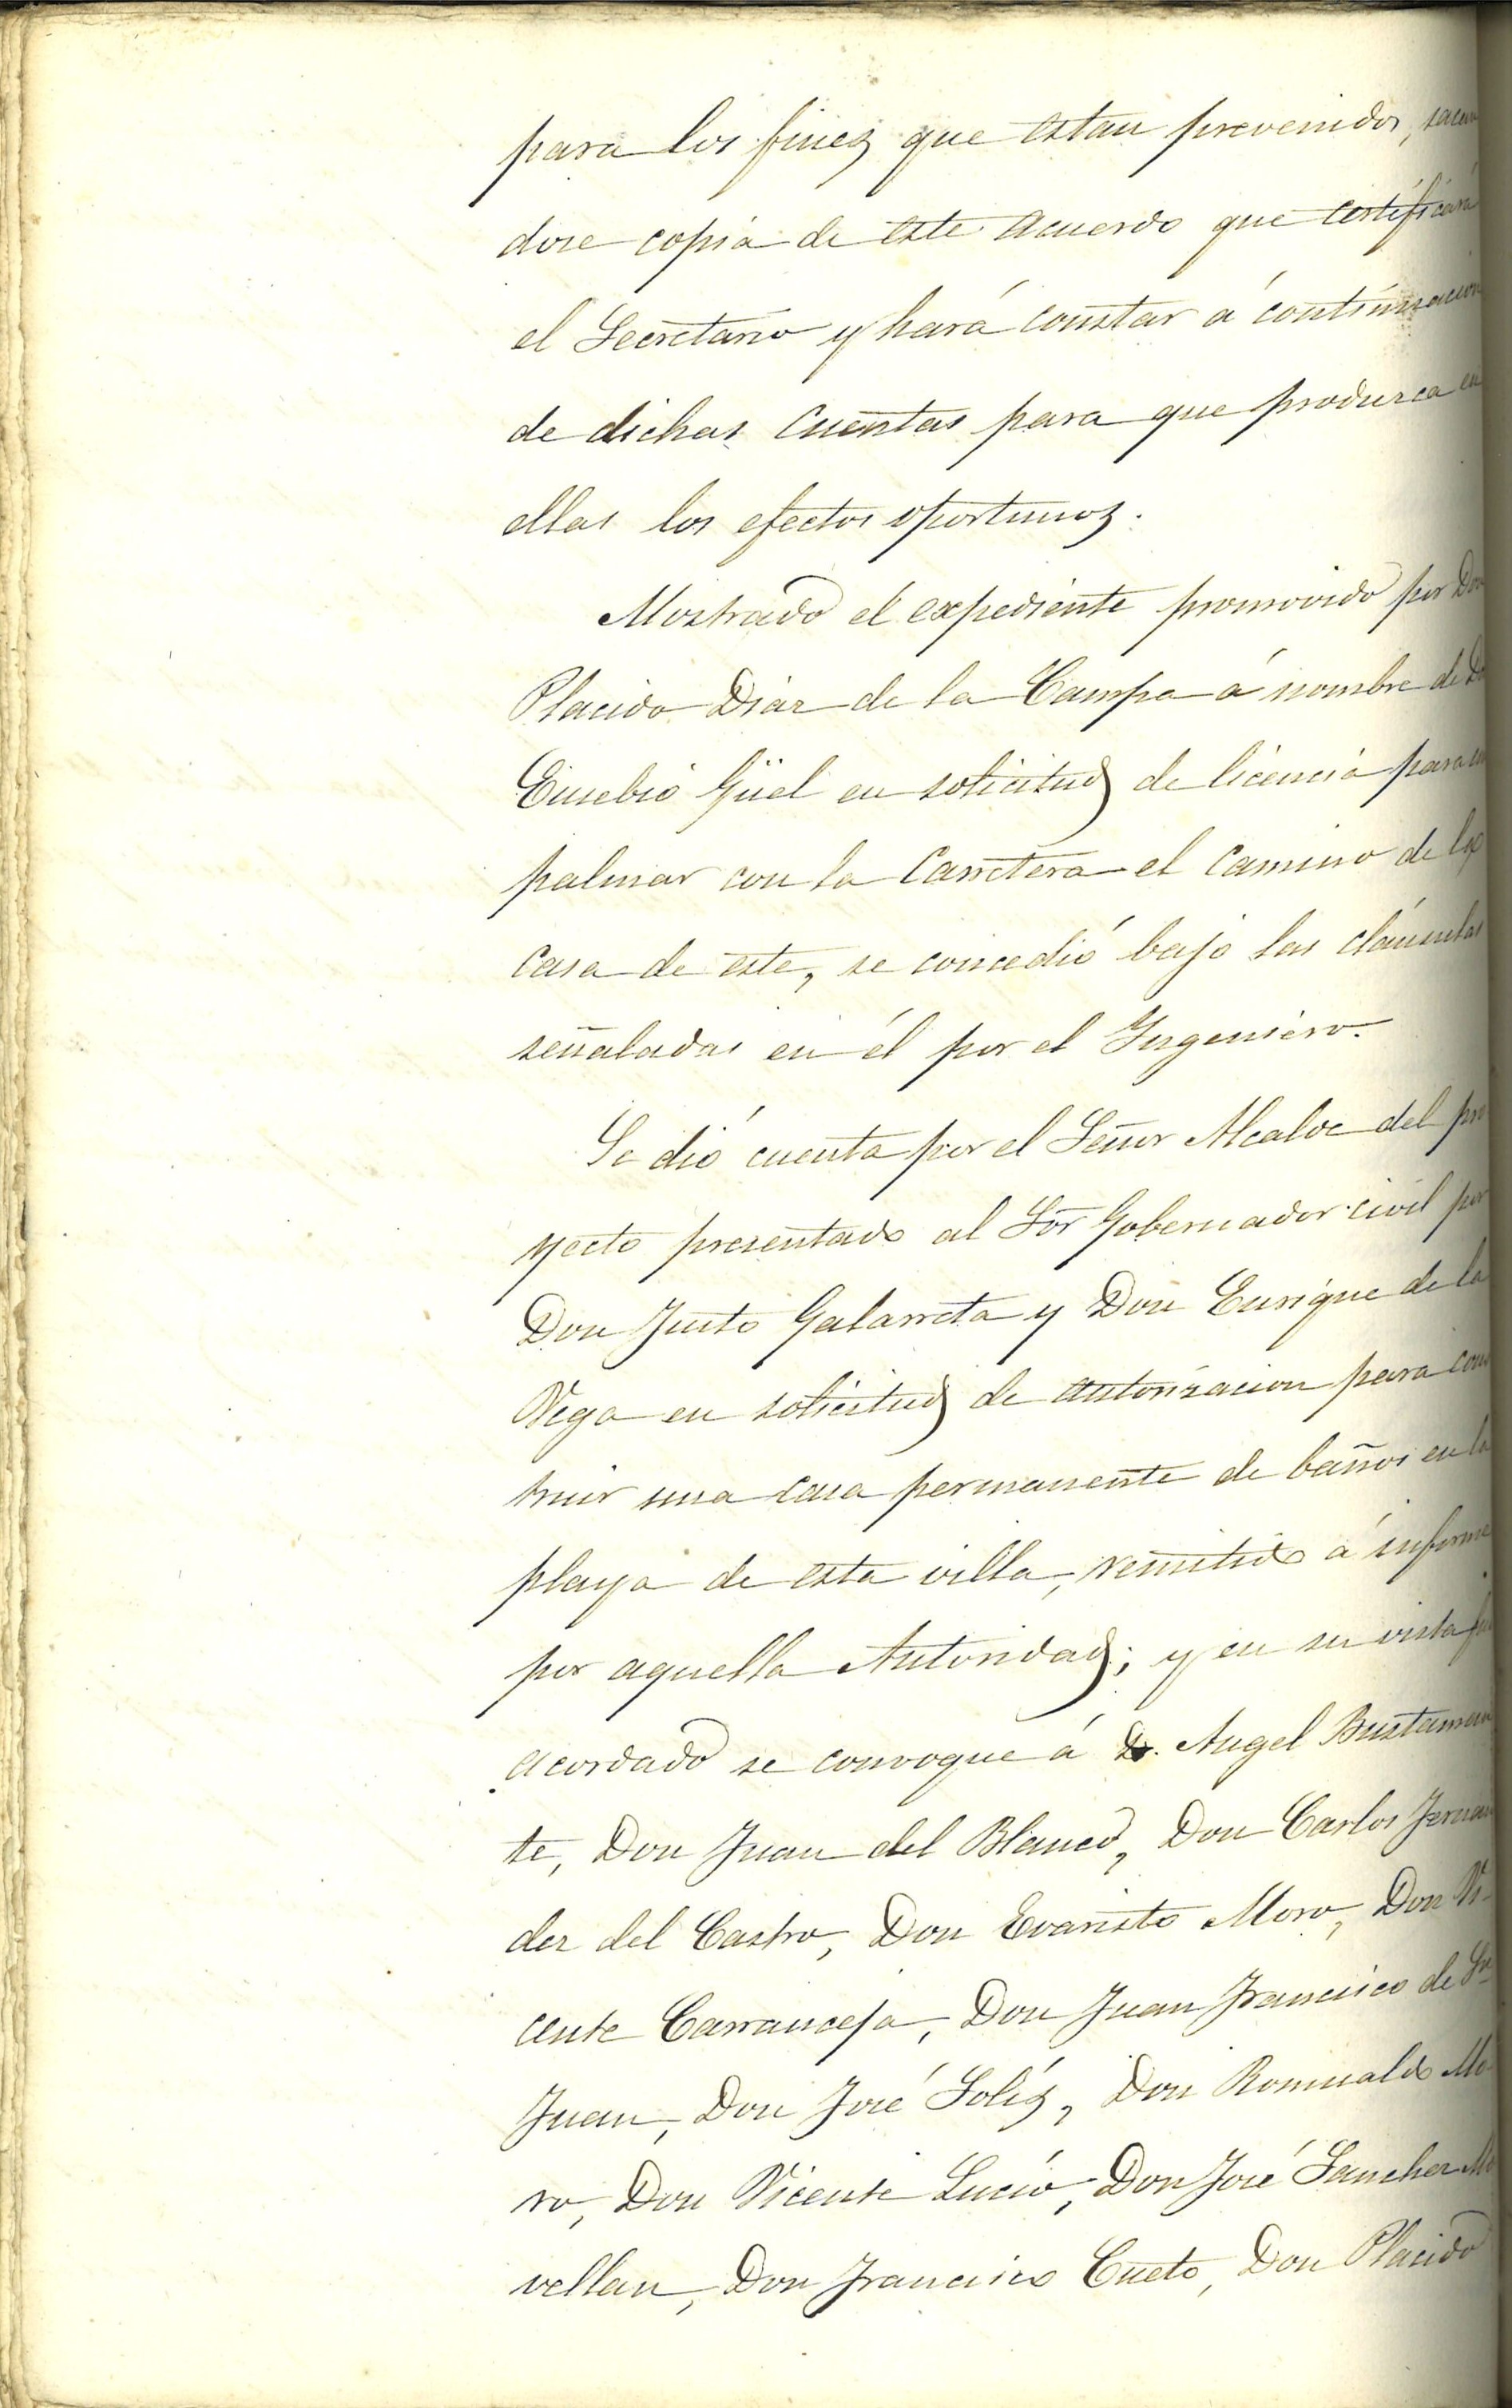 para los fines que estan prevenidos, sacan
dose copia de este acuerdo que certificará
el Secretario y hará constar á continuacion
de dichas cuentas para que produzca en
ellas los efectos oportunos.
Mostrado el expediente promovido por Don
Placido Diaz de la Campa á nombre de Dn
Eusebio Güel en solicitud de licencia para em
palmar con la Carretera el camino de la
casa de este, se concedió bajo las cláusulas
señaladas en él por el Ingeniero.
Se dió cuenta por el Señor Alcalde del pro
yecto presentado al Sor Gobernador civil por
Don Justo Galarreta y Don Enrique de la
Vega en solicitud de autorizacion para cons
truir una casa permanente de baños en la
playa de esta villa, remitido á informe
por aquella Autoridad; y en su vista fué
acordado se convoque á D. Angel Bustaman
te, Don Juan del Blanco, Don Carlos Fernan
dez del Castro, Don Evaristo Moro, Don Vi-
cente Carranceja, Don Juan Francisco de Sn
Juan, Don José Solís, Don Romualdo Mo-
ro, Don Vicente Lucio, Don José Sanchez Mo
vellan, Don Francisco Cueto, Don Placido